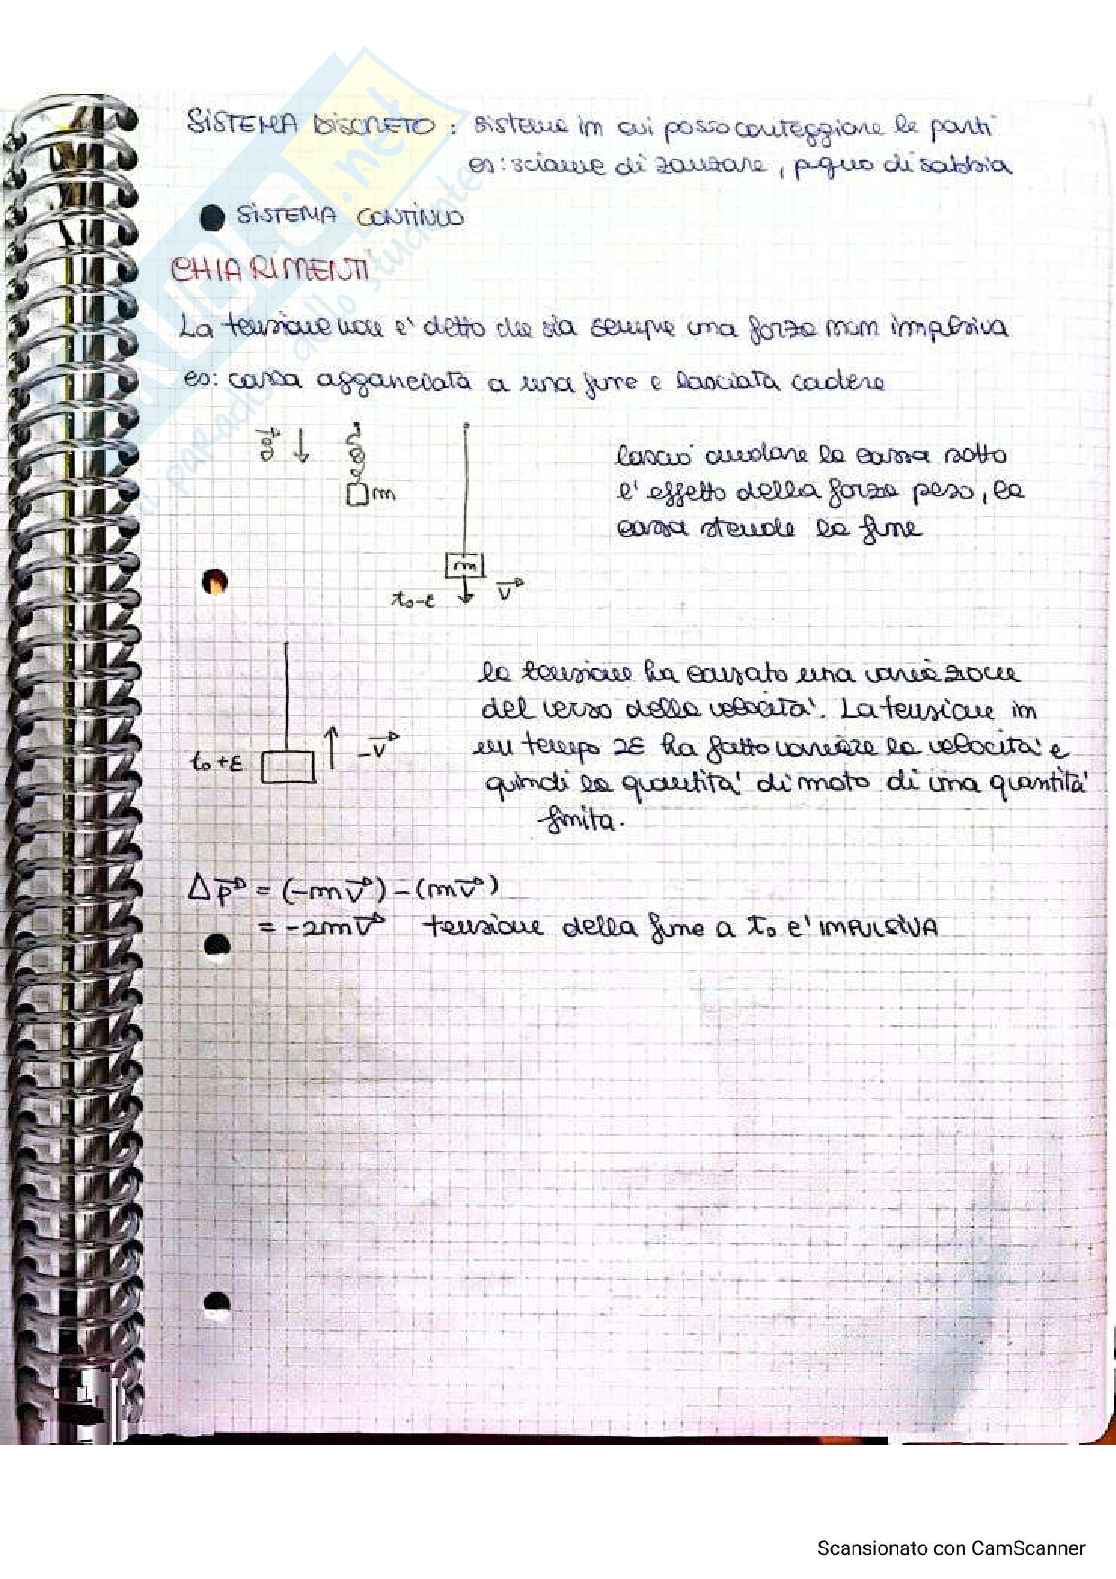 SISTEMA DISCRETO: sistema in cui posso conteggiare le parti
es: sciame di zanzare, pugno di sabbia
SISTEMA CONTINUO
CHIARIMENTI
La tensione non e' detto che sia sempre una forza non impulsiva
es: cassa agganciata a una fune e lasciata cadere
g
m
m
t₀-ε v
lascio andare la cassa sotto
l' effetto della forza peso, la
cassa stende la fune
t₀+ε -v
la tensione ha causato una variazione
del verso della velocità. La tensione in
un tempo 2ε ha fatto variare la velocità e
quindi la quantità di moto di una quantità
finita.
Δp = (-mv) - (mv)
= -2mv tensione della fune a t₀ e' IMPULSIVA
.net
dello studente
Scansionato con CamScanner